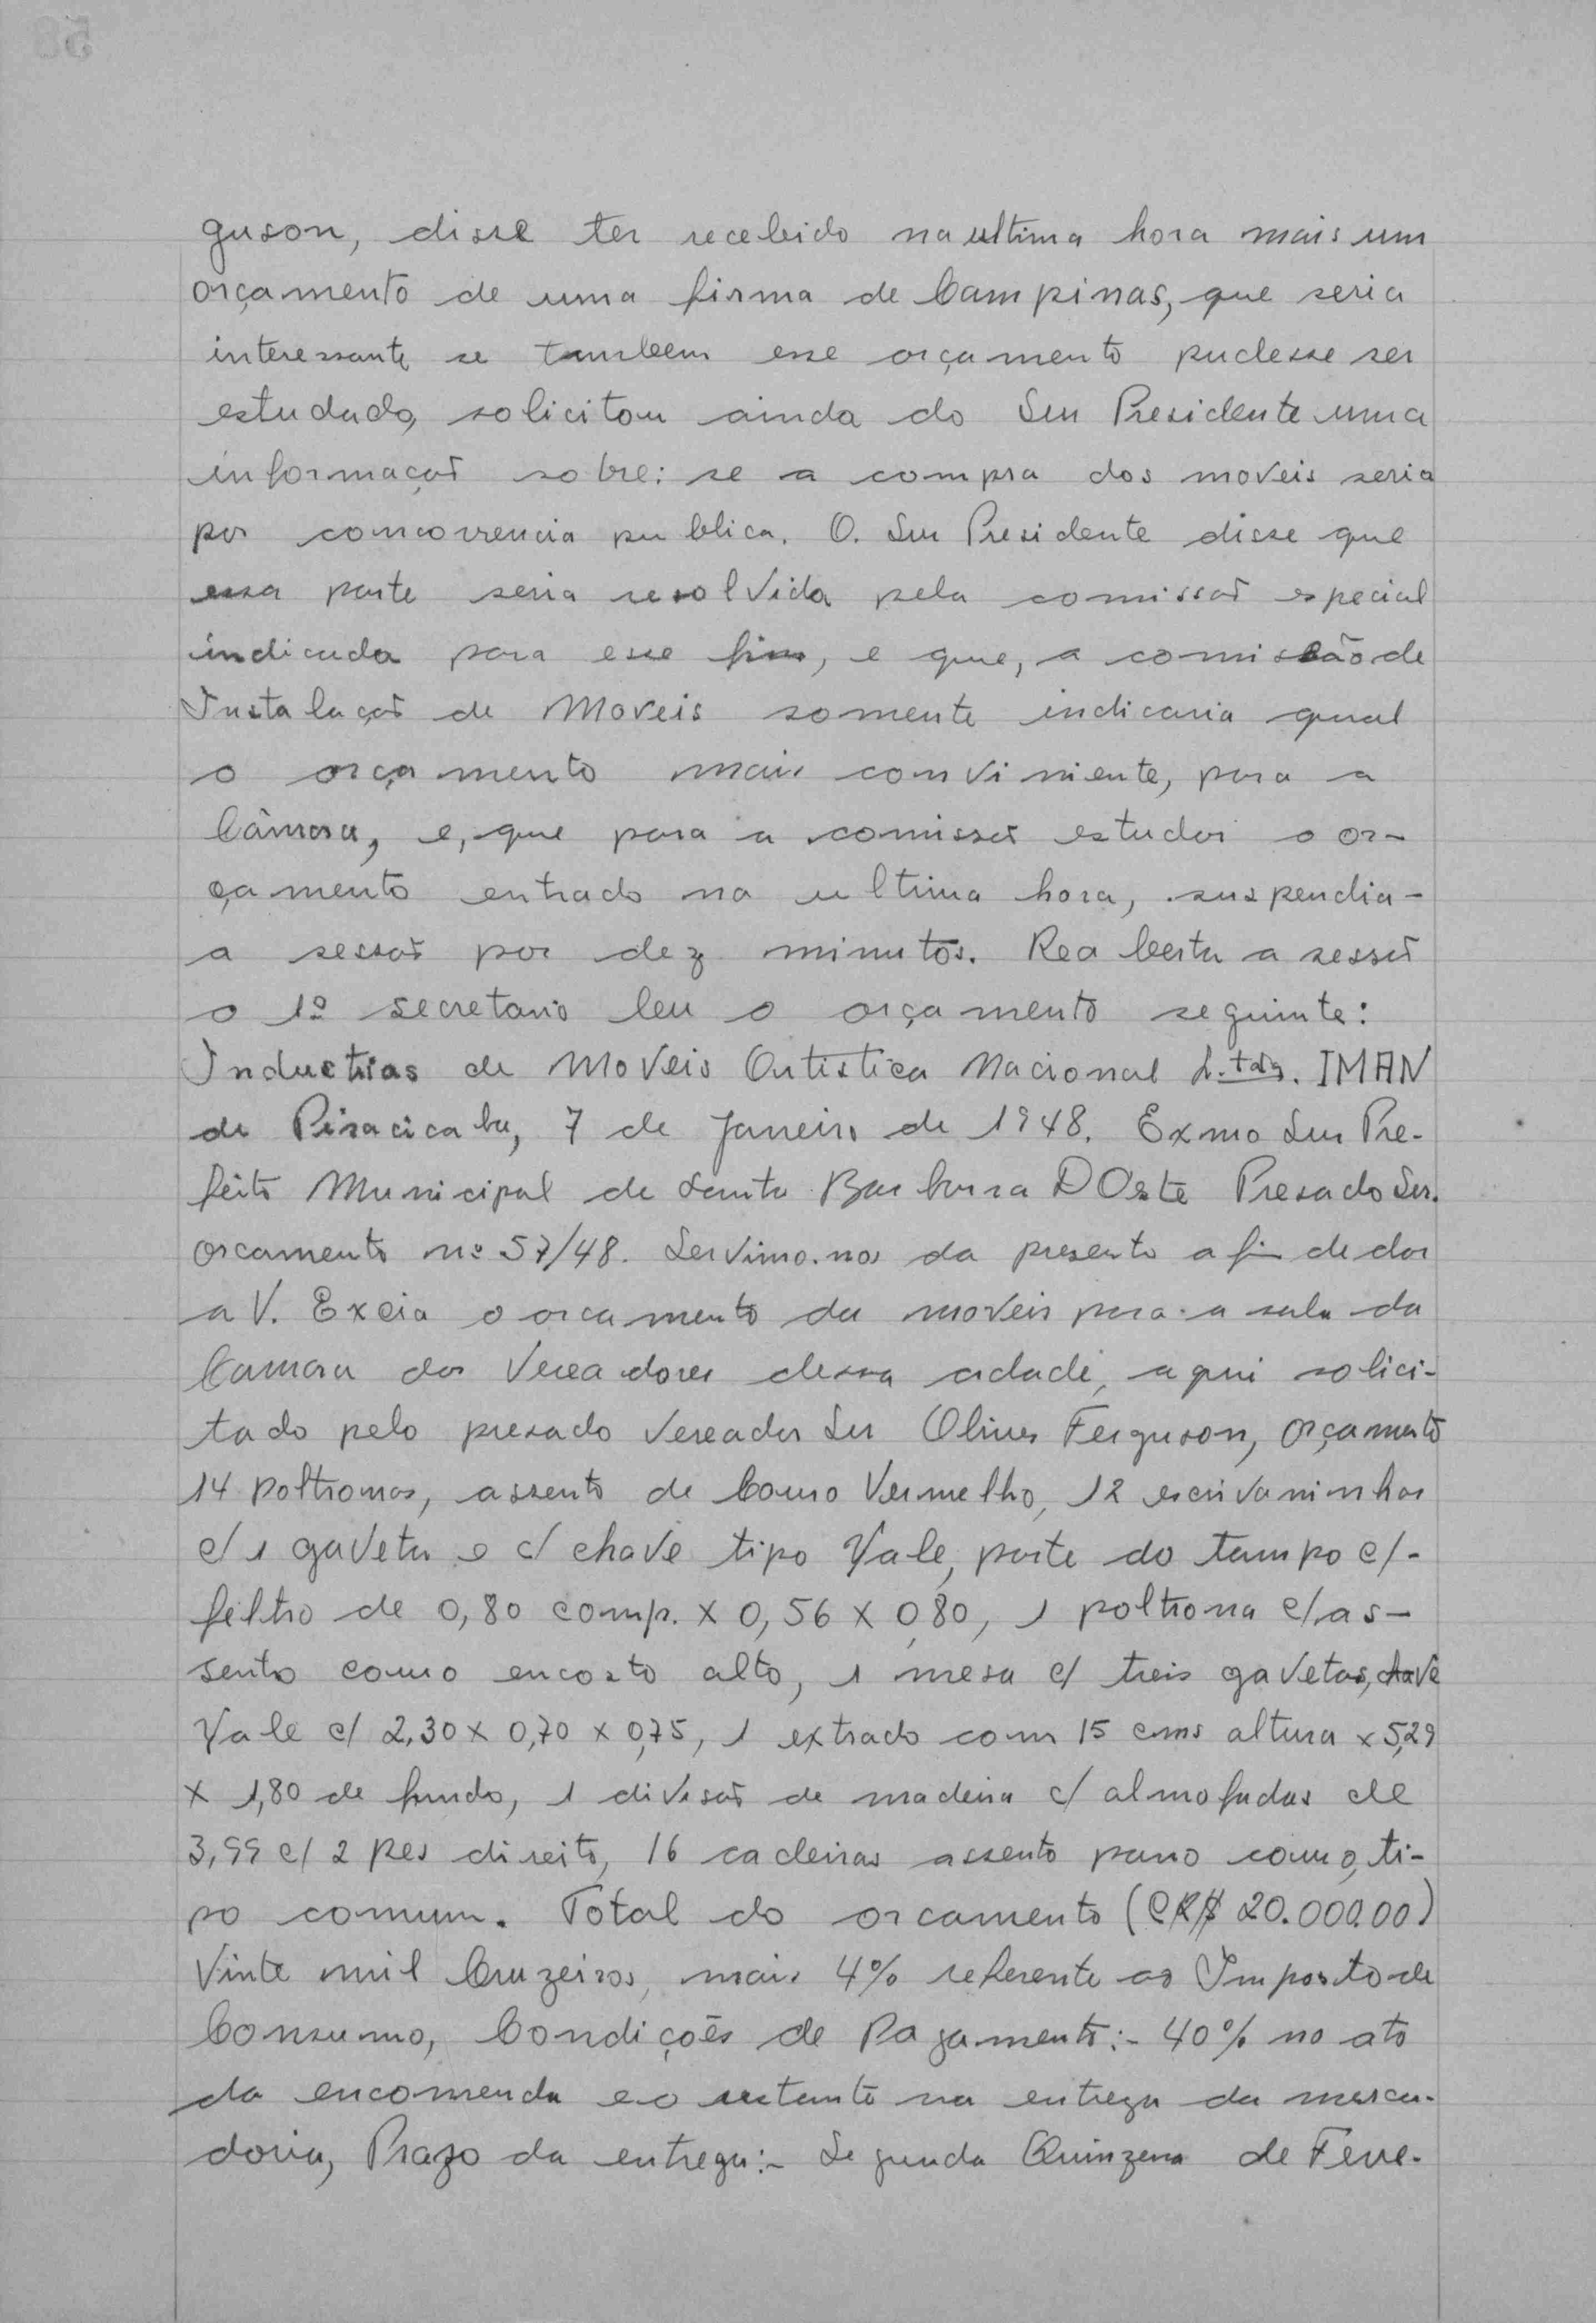 guson, disse ter recebido na ultima hora mais um
orçamento de uma firma de Campinas, que seria
interessante se tambem esse orçamento pudesse ser
estudado, solicitou ainda do Snr Presidente uma
informação sobre: se a compra dos moveis seria
por concorrencia publica. O. Snr Presidente disse que
essa parte seria resolvida pela comissão especial
indicada para esse fim, e que, a comissão de
Instalação de Moveis somente indicaria qual
o orçamento mais conviniente, para a
Câmara, e, que para a comissão estudar o or-
çamento entrado na ultima hora, suspendia-
a sessão por dez minutos. Reaberta a sessão
o 1º secretario leu o orçamento seguinte:
Industrias de Moveis Artistica Nacional L.tda. IMAN
de Piracicaba, 7 de Janeiro de 1948. Exmo Snr Pre-
feito Municipal de Santa Barbara DOeste Presado Snr.
orcamento nº 57/48. Servimo.nos da presente a fim de dar
a V. Excia o orcamento da moveis para a sala da
Camara dos Vereadores dessa cidade, aqui solici-
tado pelo presado Vereador Snr Oliver Ferguson, orçamento
14 poltronas, assento de Couro Vermelho, 12 escrivaninhas
c/ 1 gaveta e c/ chave tipo Yale, parte do tampo c/-
feltro de 0,80 comp. x 0,56 x 0,80, 1 poltrona c/ as-
sento couro encosto alto, 1 mesa c/ treis gavetas, chave
Yale c/ 2,30 x 0,70 x 0,75, 1 extrado com 15 cms altura x 5,29
x 1,80 de fundo, 1 divisão de madeira c/ almofadas de
3,99 c/ 2 pes direito, 16 cadeiras assento pano couro, ti-
po comum. Total do orcamento (CR$ 20.000,00)
Vinte mil Cruzeiros, mais 4% referente ao Imposto de
Consumo, Condições de Pagamento:- 40% no ato
da encomenda e o restante na entrega da merca-
doria, Prazo da entrega:- Segunda Quinzena de Feve-